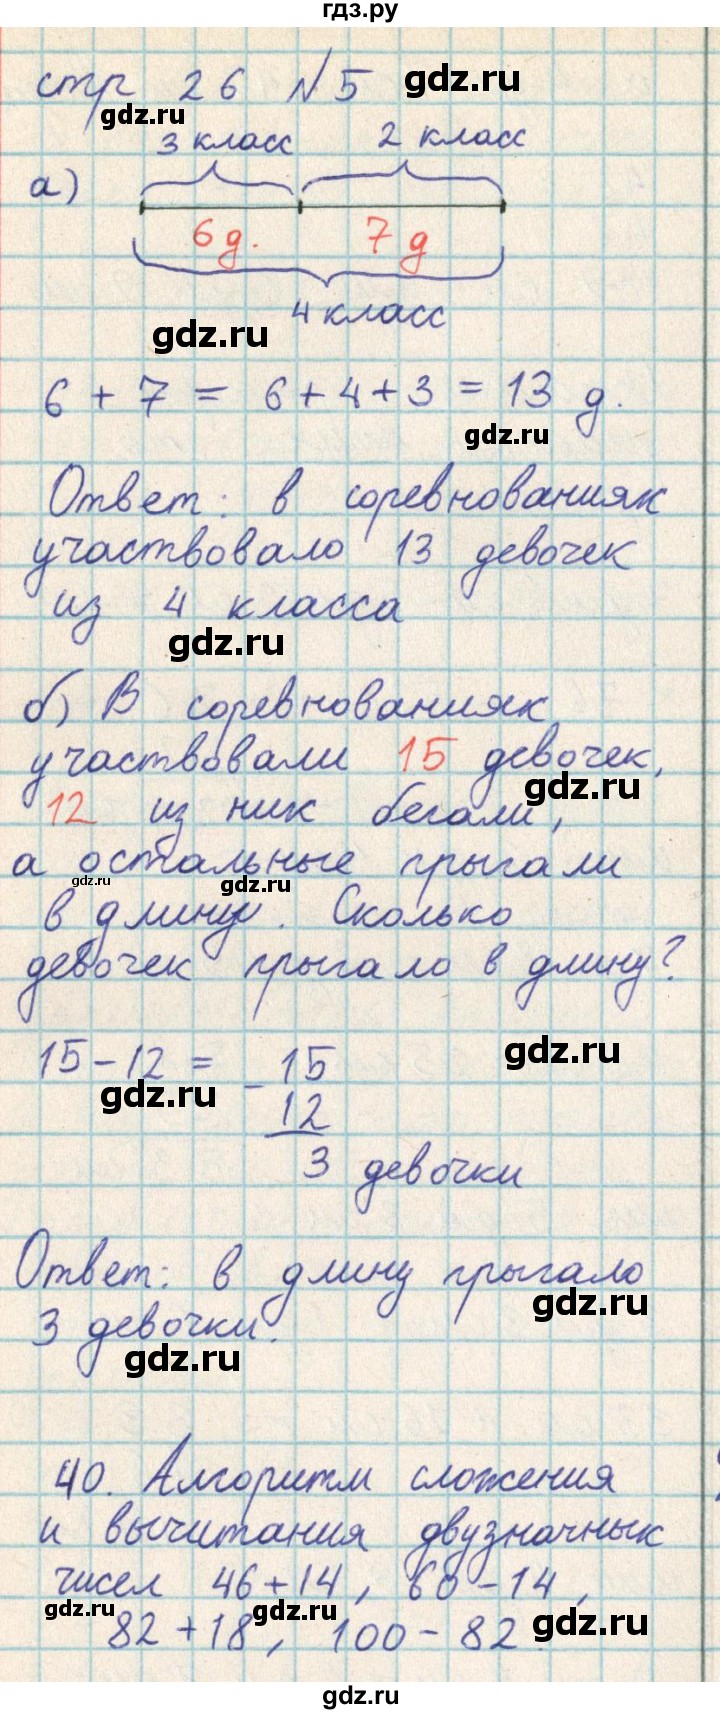 гдз.ру
стр 26 №5
gdz.ru
gdz.ru
3 класс 2 класс
а)
6 д. 7 д
4 класс
gdz.ru
6 + 7 = 6 + 4 + 3 = 13 д.
gdz.ru
Ответ: в соревнованиях
участвовало 13 девочек
из 4 класса
gdz.ru
б) В соревнованиях
участвовали 15 девочек,
gdz.ru
12 из них бегали,
а остальные прыгали
gdz.ru gdz.ru
в длину. Сколько
девочек прыгало в длину?
15 - 12 = - 15
gdz.ru
gdz.ru
12
3 девочки
Ответ: в длину прыгало
gdz.ru
3 девочки.
gdz.ru
40. Алгоритм сложения
и вычитания двузначных
чисел 46 + 14, 60 - 14,
gdz.ru gdz.ru gdz.ru
82 + 18, 100 - 82
gdz.ru